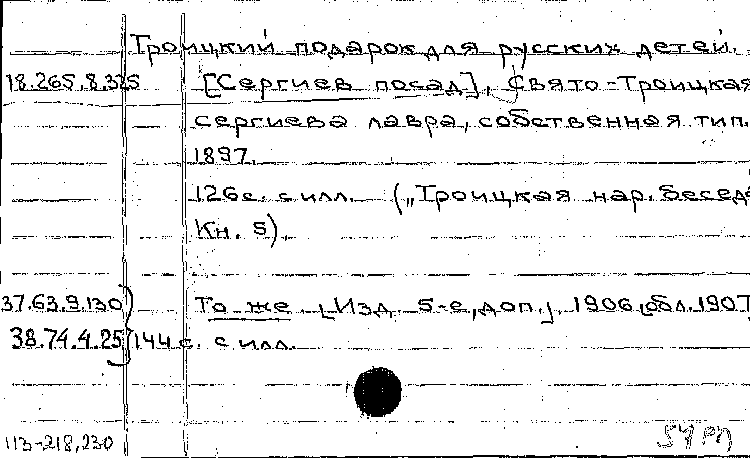 Троицкий подарок для русских детей.
18.265.8.325 [Сергиев посад], Свято-Троицкая
сергиева лавра, собственная тип.
1897.
126с. с илл. („Троицкая нар. бесед
Кн. 5).
37.63.9.130 То же [Изд. 5-е, доп.] 1906 [обл. 1907]
38.74.4.25 144 с. с илл.
113-218,230